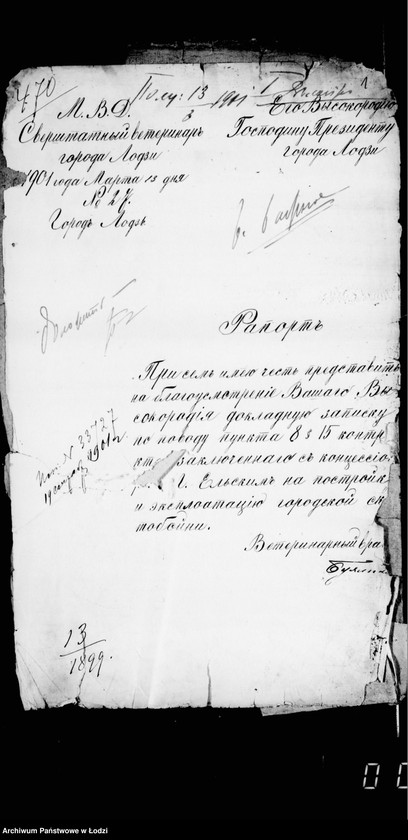 470
Получ. 13/3 1901 г.
1
М. В. Д.
Сверхштатный ветеринаръ
города Лодзи
1901 года Марта 13 дня
№ 27.
Городъ Лодзь
Его Высокородію
Господину Президенту
города Лодзи
Доложить
Рапортъ
При семъ имею честь представить
на благоусмотреніе Вашего Вы-
сокородія докладную записку
по поводу пункта 8 § 15 контр
кт заключеннаго съ концессіо
Г. Ельскимъ на постройк
и эксплоатацію городской ск
тобойни.
Ветеринарный вра
№ 33427
1901 г.
13/1899.
Archiwum Państwowe w Łodzi
00